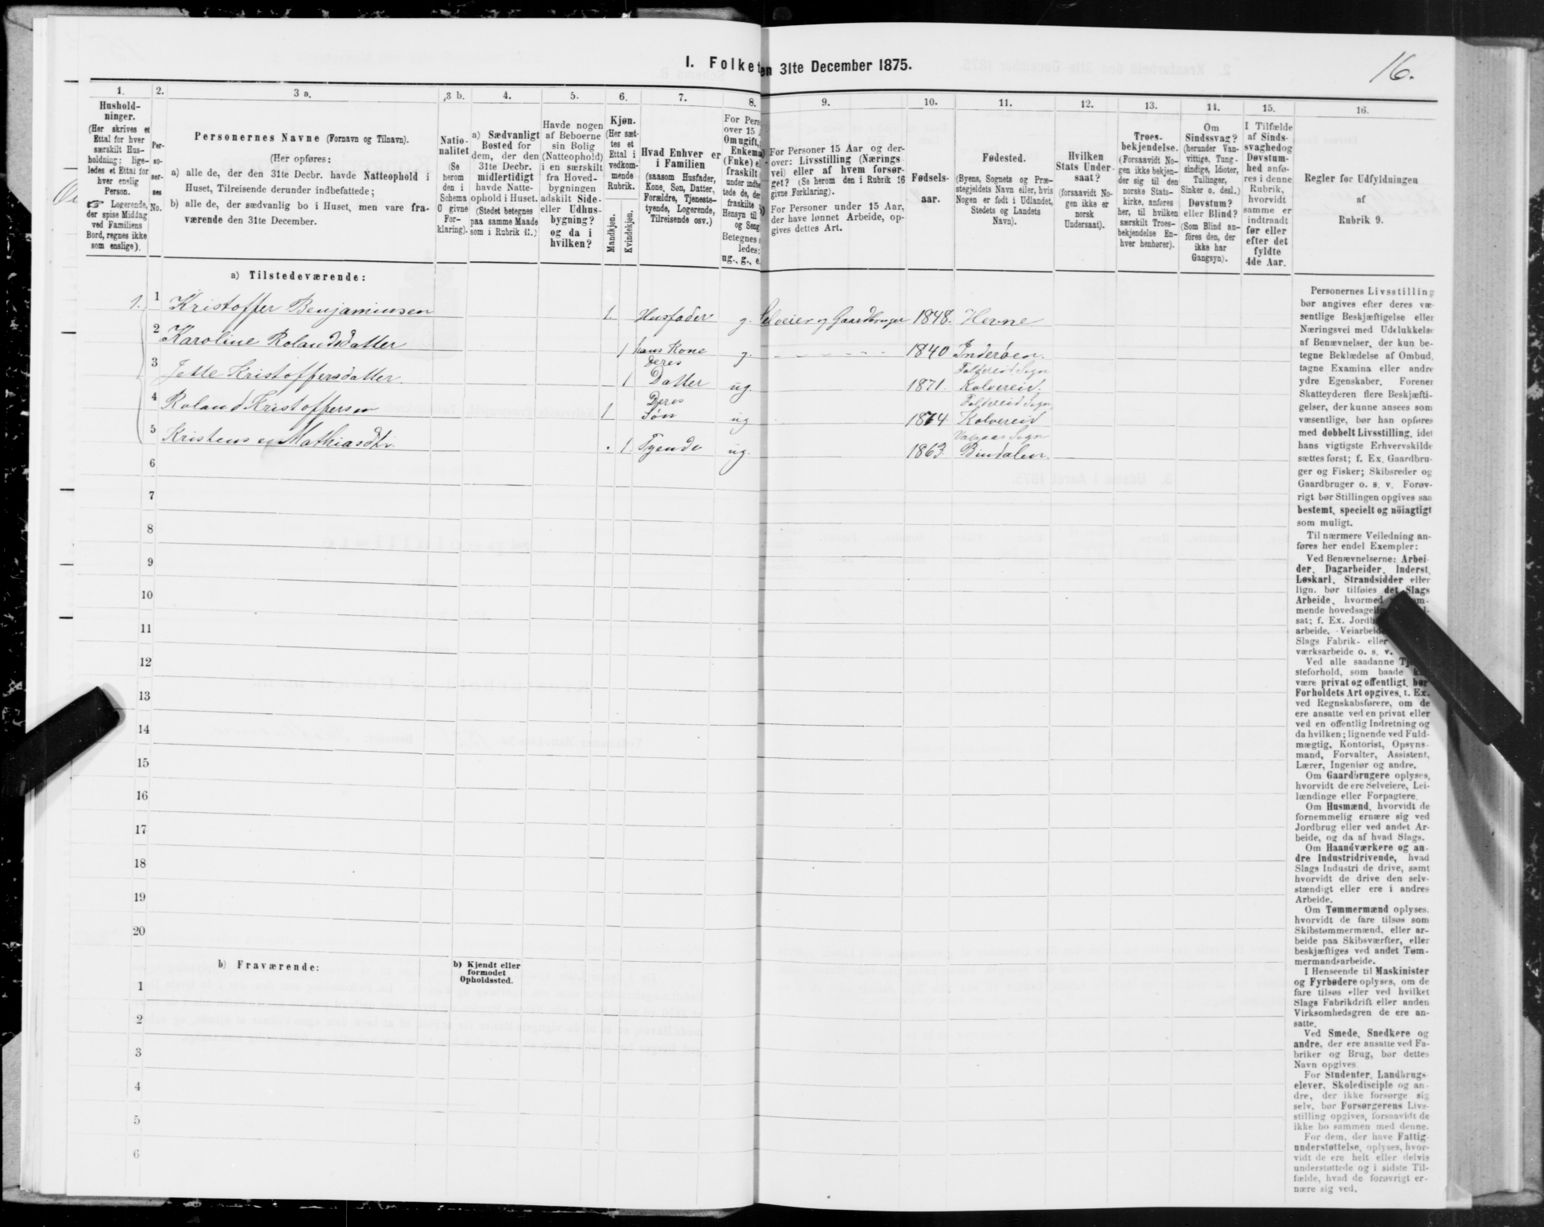 I. Folket
en 31te December 1875.
16.
1.
2.
3 a.
3 b.
4.
5.
6.
7.
8.
9.
10.
11.
12.
13.
14.
15.
16.
Hushold-
ninger.
(Her skrives et
Ettal for hver
særskilt Hus-
holdning; lige-
ledes et Ettal for
hver enslig
Person.
☞ Logerende,
der spise Middag
ved Familiens
Bord, regnes ikke
som enslige).
Per-
so-
ner-
nes
No.
Personernes Navne (Fornavn og Tilnavn).
(Her opføres:
a) alle de, der den 31te Decbr. havde Natteophold i
Huset, Tilreisende derunder indbefattede;
b) alle de, der sædvanlig bo i Huset, men vare fra-
værende den 31te December.
Natio-
nalitet
(Se
herom
den i
Schema
C givne
For-
klaring).
a) Sædvanligt
Bosted for
dem, der den
31te Decbr.
midlertidigt
havde Natte-
ophold i Huset.
(Stedet betegnes
paa samme Maade
som i Rubrik 11.)
Havde nogen
af Beboerne
sin Bolig
(Natteophold)
i en særskilt
fra Hoved-
bygningen
adskilt Side-
eller Udhus-
bygning?
og da i
hvilken?
Kjøn.
(Her sæt-
tes et
Ettal i
vedkom-
mende
Rubrik.
Mandkjøn.
Kvindekjøn.
Hvad Enhver er
i Familien
(saasom Husfader,
Kone, Søn, Datter,
Forældre, Tjeneste-
tyende, Logerende,
Tilreisende osv.)
For Pers
over 15
Om ugift,
Enkema
(Enke) e
fraskilt
under indbe
tede de, der
fraskilte
Hensyn til
og Seng
Betegnes
ledes:
ug., g., e.
For Personer 15 Aar og der-
over: Livsstilling (Nærings-
vei) eller af hvem forsør-
get? (Se herom den i Rubrik 16
givne Forklaring).
For Personer under 15 Aar,
der have lønnet Arbeide, op-
gives dettes Art.
Fødsels-
aar.
Fødested.
(Byens, Sognets og Præ-
stegjeldets Navn eller, hvis
Nogen er født i Udlandet,
Stedets og Landets
Navn).
Hvilken
Stats Under-
saat?
(forsaavidt No-
gen ikke er
norsk
Undersaat).
Troes-
bekjendelse.
(Forsaavidt No-
gen ikke bekjen-
der sig til den
norske Stats-
kirke, anføres
her, til hvilken
særskilt Troes-
bekjendelse En-
hver henhører).
Om
Sindssvag?
(herunder Van-
vittige, Tung-
sindige, Idioter,
Tullinger,
Sinker o. desl.)
Døvstum?
eller Blind?
(Som Blind an-
føres den, der
ikke har
Gangsyn).
I Tilfælde
af Sinds-
svaghed og
Døvstum-
hed anfø-
res i denne
Rubrik,
hvorvidt
samme er
indtraadt
før eller
efter det
fyldte
4de Aar.
Regler for Udfyldningen
af
Rubrik 9.
a) Tilstedeværende:
1. 1 Kristoffer Benjaminsen 1. Husfader g. Selveier og Gaardbruger 1848. Hevne
2 Karoline Rolandsdatter 1 hans Kone g. 1840 Inderøen.
3 Jette Kristoffersdatter. 1 Deres Datter ug. 1871. Foldereid Sogn Kolvereid.
4 Roland Kristoffersen 1 Deres Søn ug 1874 Foldereid Sogn Kolvereid
5 Mathiasdtr. 1 Tyende ug. 1863 Sogn Bindalen.
6
7
8
9
10
11
12
13
14
15
16
17
18
19
20
b) Fraværende:
b) Kjendt eller
formodet
Opholdssted.
1
2
3
4
5
6
Personernes Livsstilling
bør angives efter deres væ-
sentlige Beskjæftigelse eller
Næringsvei med Udelukkelse
af Benævnelser, der kun be-
tegne Beklædelse af Ombud,
tagne Examina eller andre
ydre Egenskaber. Forener
Skatteyderen flere Beskjæfti-
gelser, der kunne ansees som
væsentlige, bør han opføres
med dobbelt Livsstilling, idet
hans vigtigste Erhvervskilde
sættes først; f. Ex. Gaardbru-
ger og Fisker; Skibsreder og
Gaardbruger o. s. v. Forøv-
rigt bør Stillingen opgives saa
bestemt, specielt og nöiagtigt
som muligt.
Til nærmere Veiledning an-
føres her endel Exempler:
Ved Benævnelserne: Arbei-
der, Dagarbeider, Inderst,
Løskarl, Strandsidder eller
lign. bør tilføies det Slags
Arbeide, hvormed
mende hovedsagel
sat; f. Ex. Jordb
arbeide, Veiarbeid
Slags Fabrik- eller
værksarbeide o. s. v.
Ved alle saadanne Tj
steforhold, som baade
være privat og offentligt, bør
Forholdets Art opgives, t. Ex.
ved Regnskabsførere, om de
ere ansatte ved en privat eller
ved en offentlig Indretning og
da hvilken; lignende ved Fuld-
mægtig, Kontorist, Opsyns-
mand, Forvalter, Assistent,
Lærer, Ingeniør og andre.
Om Gaardbrugere oplyses,
hvorvidt de ere Selveiere, Lei-
lændinge eller Forpagtere.
Om Husmænd, hvorvidt de
fornemmelig ernære sig ved
Jordbrug eller ved andet Ar-
beide, og da af hvad Slags.
Om Haandværkere og an-
dre Industridrivende, hvad
Slags Industri de drive, samt
hvorvidt de drive den selv-
stændigt eller ere i andres
Arbeide.
Om Tømmermænd oplyses,
hvorvidt de fare tilsøs som
Skibstømmermænd, eller ar-
beide paa Skibsværfter, eller
beskjæftiges ved andet Tøm-
mermandsarbeide.
I Henseende til Maskinister
og Fyrbødere oplyses, om de
fare tilsøs eller ved hvilket
Slags Fabrikdrift eller anden
Virksomhedsgren de ere an-
satte.
Ved Smede, Snedkere og
andre, der ere ansatte ved Fa-
briker og Brug, bør dettes
Navn opgives
For Studenter, Landbrugs-
elever, Skoledisciple og an-
dre, der ikke forsørge sig
selv, bør Forsørgerens Livs-
stilling opgives, forsaavidt de
ikke bo sammen med denne.
For dem, der have Fattig-
understøttelse, oplyses, hvor-
vidt de ere helt eller delvis
understøttede og i sidste Til-
fælde, hvad de forøvrigt er-
nære sig ved.